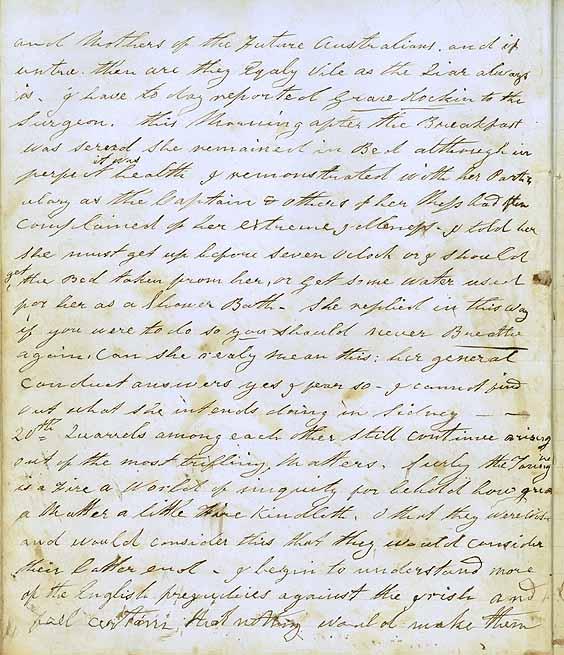 and Mothers of the Future Australians. and if
untrue. then are they Egaly Vile as the Liar always
is. I have to day reported Grace Hockin to the
Surgeon. this Morning after the Breakfast
was serevd she remained in Bed although in
it was
perfect health I remonstrated with her Partic
ulary as the Captain & others of her Mess had often
Complained of her extreme Idleness. I told her
she must get up before seven O clock or I should
get
the Bed taken from her, or get some water used
for her as a Shower Bath - She replied in this way
if you were to do so you should never Breathe
again. Can she realy mean this: her general
Conduct answers yes I fear so - I cannot find
out what she intends doing in Sidney - -
20th Quarrels among each other still continue arising
out of the most trifling Matters. Surly the Toung
is a Fire a World of iniquity for behold how great
a Matter a little kindleth. O that they were Wise
and would consider this that they would consider
their latter end - I begin to understand more
of the English prejudices against the Irish and
feel certain, that nothing would make them